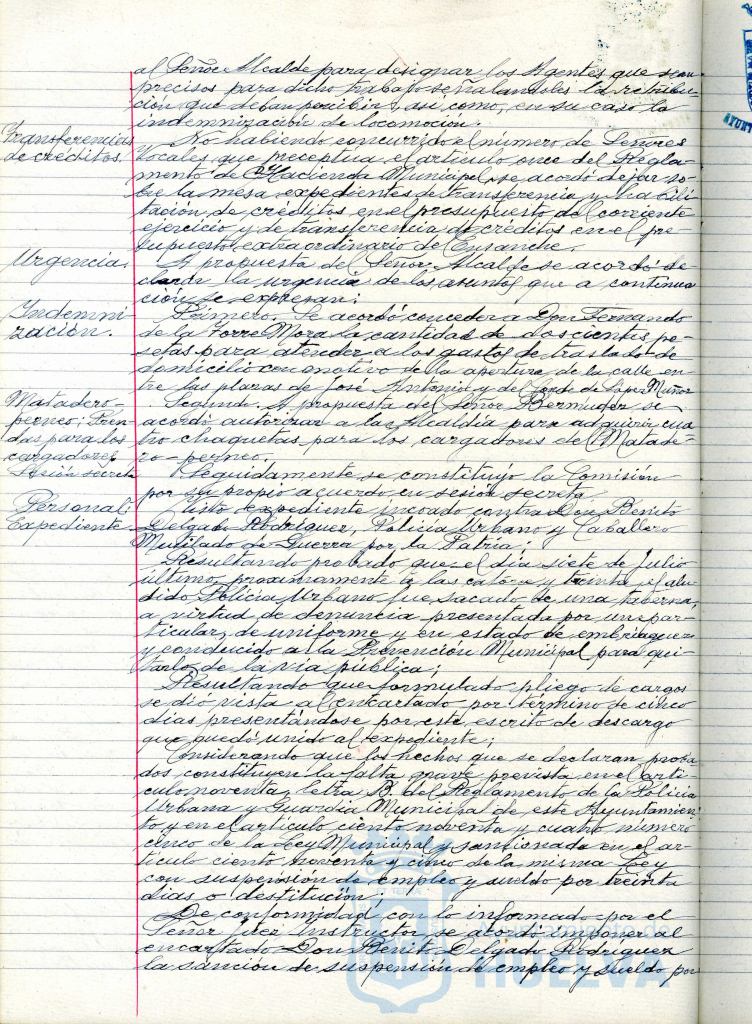 al Señor Alcalde para designar los Agentes que sean
precisos para dicho trabajo señalandoles la retribu-
ción que deban percibir, así como, en su caso la
indemnización de locomoción.
Transferencias
de créditos.
No habiendo concurrido el número de Señores
Vocales que preceptua el artículo once del Regla-
mento de Hacienda Municipal, se acordó dejar so-
bre la mesa expedientes de transferencia y habili-
tación de créditos en el presupuesto del corriente
ejercicio y de transferencia de créditos en el pre-
supuesto extraordinario de Ensanche.
Urgencia.
A propuesta del Señor Alcalde se acordó de-
clarar la urgencia de los asuntos que a continua
ción se expresan:
Indemni
zación.
Primero. Se acordó conceder a Don Fernando
de la Torre Mora la cantidad de doscientas pe-
setas para atender a los gastos de traslado de
domicilio con motivo de la apertura de la calle en-
tre las plazas de José Antonio y del Conde de López Muñoz
Matadero-
perneo; Pren-
das para los
cargadores
Segundo. A propuesta del Señor Bermudez se
acordó autorizar a la Alcaldía para adquirir cua
tro chaquetas para los cargadores del Matade-
ro-perneo.
Sesión secreta
Seguidamente se constituyó la Comisión
por su propio acuerdo, en sesión secreta.
Personal:
Expediente
Visto expediente incoado contra Don Benito
Delgado Rodríguez, Policía Urbano y Caballero
Mutilado de Guerra por la Patria.
Resultando probado que el día siete de Julio
último, proximamente a las catorce y treinta, el alu-
dido Policía Urbano fue sacado de una taberna,
a virtud de denuncia presentada por un par-
ticular, de uniforme y en estado de embriaguez
y conducido a la Prevención Municipal para qui-
tarlo de la vía pública;
Resultando que formulado pliego de cargos
se dio vista al encartado por término de cinco
días presentándose por este, escrito de descargo
que quedó unido al expediente;
Considerando que los hechos que se declaran proba
dos constituyen la falta grave prevista en el artí-
culo noventa, letra B. del Reglamento de la Policía
Urbana y Guardia Municipal de este Ayuntamien-
to y en el artículo ciento noventa y cuatro número
cinco de la Ley Municipal y sancionada en el ar-
tículo ciento noventa y cinco de la misma Ley
con suspensión de empleo y sueldo por treinta
días o destitución;
De conformidad con lo informado por el
Señor Juez Instructor se acordó imponer al
encartado Don Benito Delgado Rodríguez
la sanción de suspensión de empleo y sueldo por
HUELVA